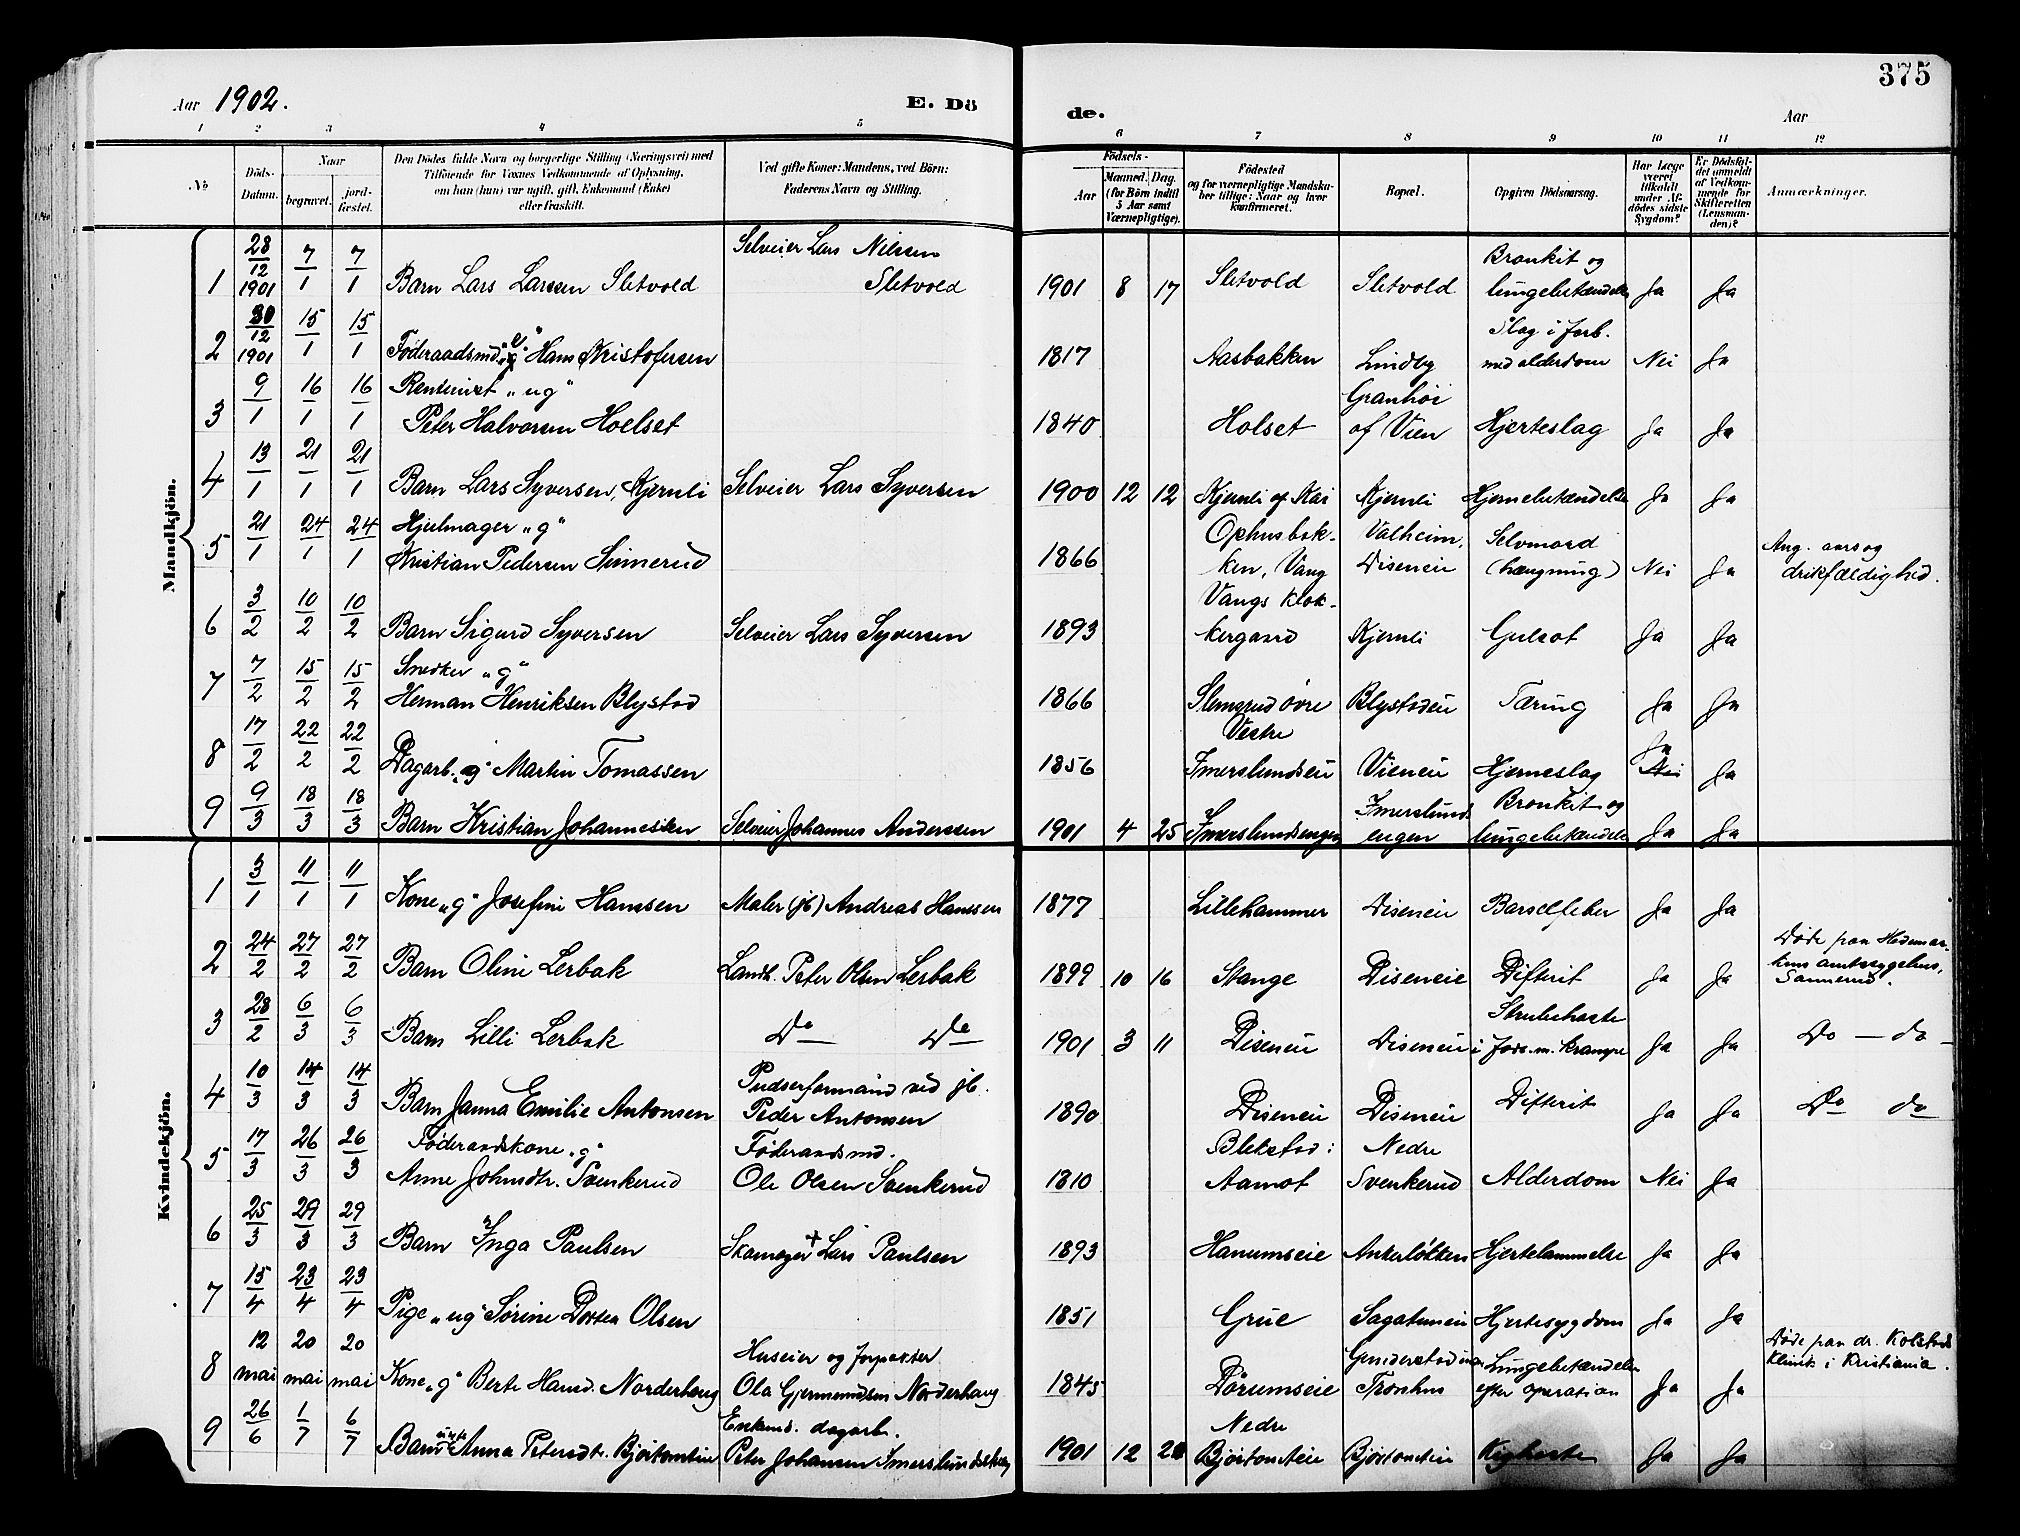 375
Aar 1902. E. Dö de. Aar
1 2 3 4 5 6 7 8 9 10 11 12
No Döds-Datum. Naar begravet. jord-fæstet. Den Dödes fulde Navn og borgerlige Stilling (Næringsvei) med Tilföiende for Voxnes Vedkommende af Oplysning, om han (hun) var ugift, gift, Enkemand (Enke) eller fraskilt. Ved gifte Koner: Mandens, ved Börn: Faderens Navn og Stilling. Födsels- Aar Maaned. Dag. (for Börn indtil 5 Aar samt Værnepligtige). Födested og for værnepligtige Mandskaber tillige: Naar og hvor konfirmeret. Bopæl. Opgiven Dödsaarsag. Har Læge været tilkaldt under Afdödes sidste Sygdom? Er Dödsfaldet anmeldt af Vedkommende for Skifteretten (Lensmanden)? Anmærkninger.
Mandkjön.
1 28/12 1901 7/1 7/1 Barn Lars Larssen Sletvold Selveier Lars Nilssen Sletvold 1901 8 17 Sletvold Sletvold Bronkit og lungebetændelse Ja Ja
2 30/12 1901 15/1 15/1 Føderaadsmd. "e" Hans Kristofersen 1817 Aasbakken Lindby Slag i forb. med alderdom Nei Ja
3 9/1 16/1 16/1 Rentenist "ug" Peter Halvorsen Hoelset 1840 Holset Granhöi af Vien Hjerteslag Ja Ja
4 13/1 21/1 21/1 Barn Lars Syversen, Kjernli Selveier Lars Syversen 1900 12 12 Kjernli af Kai Kjernli Hjernebetændelse Ja Ja
5 21/1 24/1 24/1 Hjulmager "g" Kristian Pedersen Sinnerud 1866 Ophusbakken, Vang Valheim, Diseneie Selvmord (hængning) Nei Ja Ang. aarsag drikfældighed.
6 3/2 10/2 10/2 Barn Sigurd Syversen Selveier Lars Syversen 1893 Vangs klokkergaard Kjernli Gulsot Ja Ja
7 7/2 15/2 15/2 Snedker "g" Herman Henriksen Blystad 1866 Slemsrud øvre Blystadeie Tæring Ja Ja
8 17/2 22/2 22/2 Dagarb. "g" Martin Tomassen 1856 Vestre Imerslundseie Vieneie Hjerneslag Ja Ja
9 9/3 18/3 18/3 Barn Kristian Johannessen Selveier Johannes Anderssen 1901 4 25 Imerslundsengen Imerslundsengen Bronkit og lungebetændelse Ja Ja
Kvindekjön.
1 3/1 11/1 11/1 Kone "g" Josefine Hanssen Maler (jb) Andreas Hanssen 1877 Lillehammer Diseneie Barselfeber Ja Ja
2 24/2 27/2 27/2 Barn Oline Lerbak Landh. Peter Olsen Lerbak 1899 10 16 Stange Diseneie Difterit Ja Ja Døde paa Hedemarkens amtssygehus, Sannerud.
3 28/2 6/3 6/3 Barn Lilli Lerbak Do Do 1901 3 11 Diseneie Diseneie Strubehoste i forb. m. krampe Ja Ja Do — do —
4 10/3 14/3 14/3 Barn Janna Emilie Antonsen Pudserformand ved jb. Peder Antonsen 1890 Diseneie Diseneie Difterit Ja Ja Do do
5 17/3 26/3 26/3 Føderaadskone "g" Anne Johnsdtr. Svenkerud Føderaadsmd. Ole Olsen Svenkerud 1810 Blekstad i Aamot Nedre Svenkerud Alderdom Nei Ja
6 25/3 29/3 29/3 Barn Inga Paulsen Skomager + Lars Paulsen 1893 Hanumseie Ankerløkken Hjertelammelse Ja Ja
7 15/4 23/4 23/4 Pige "ug" Sørine Dortea Olsen 1851 Grue Sagatuneie Hjertesygdom Ja Ja
8 12 mai 20 mai 20 mai Kone "g" Berte Hansd. Norderhaug Huseier og forpakter Ola Gjermundsen Norderhaug 1845 Dørumseie Tronhus Lungebetændelse efter operation Ja Ja Døde paa dr. Kolstads klinik i Kristiania.
9 26/6 1/7 6/7 Barn Anna Petersdtr. Bjørtomteie Enkemd. dagarb. Peter Johansen 1901 12 Nedre Bjørtomteie Bjørtomteie Kighoste Ja Ja